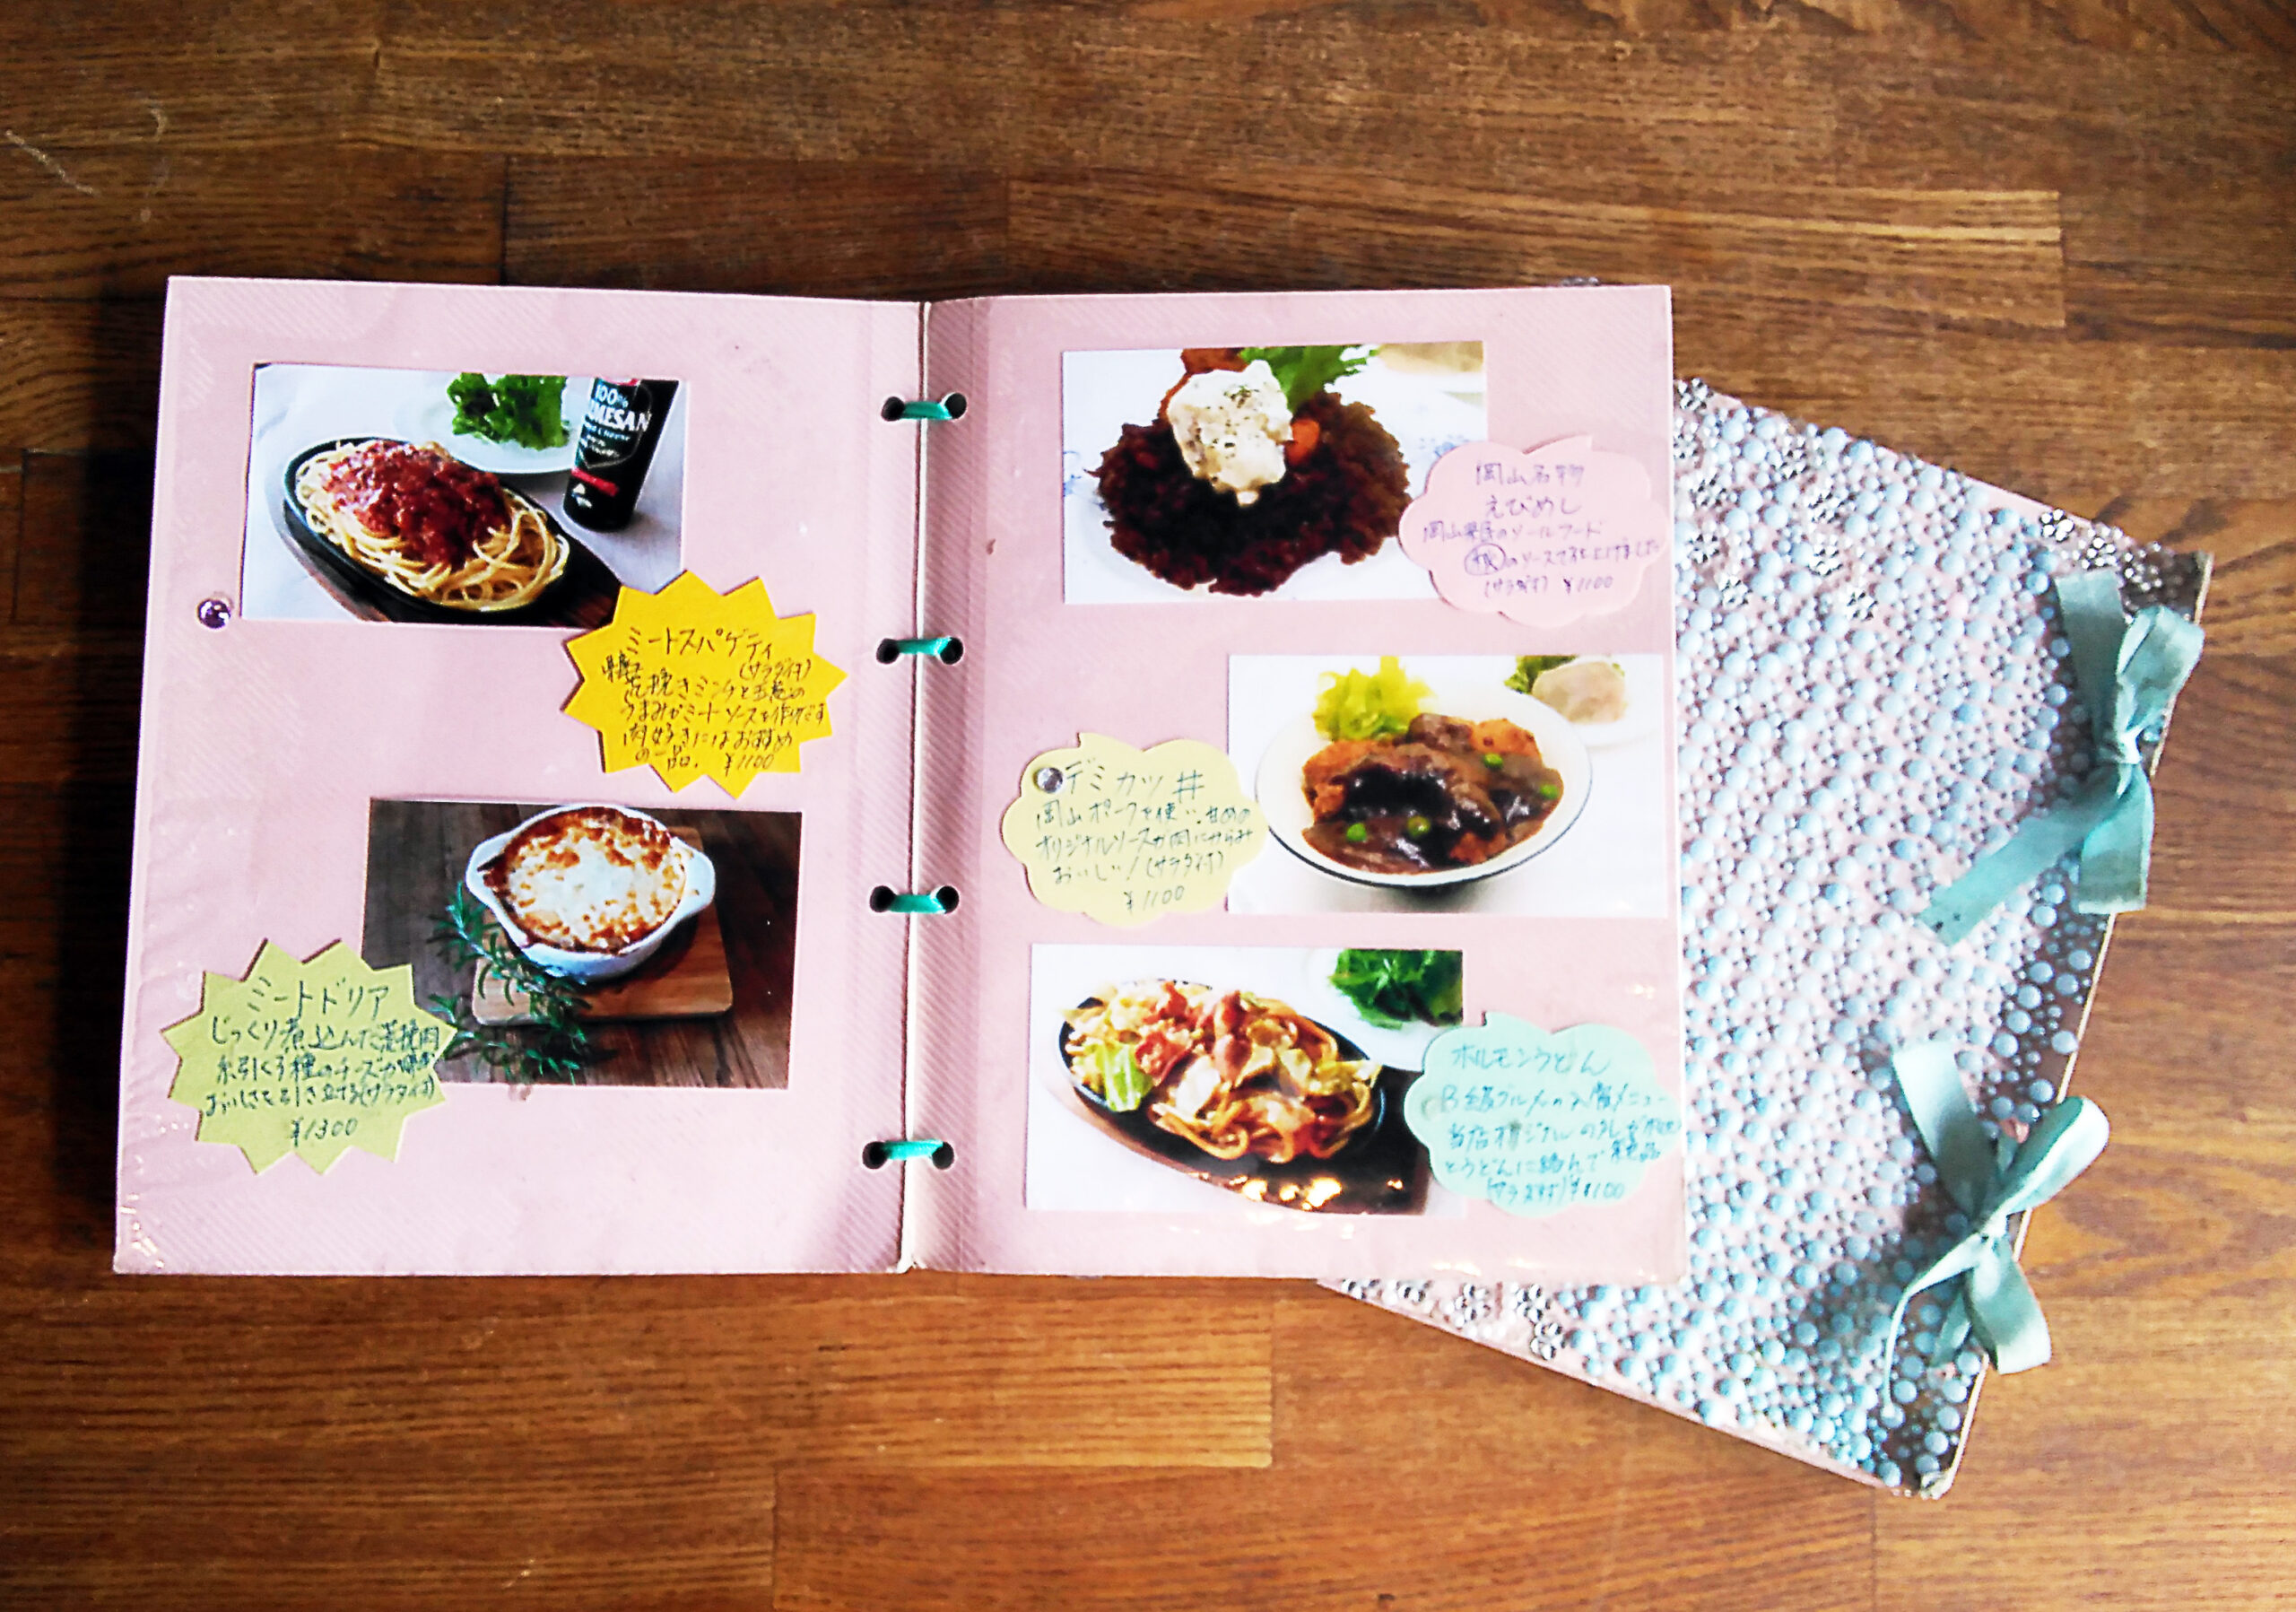 100%
MESAN
ミートスパゲティ
(サラダ付)
荒挽きミンチと玉葱の
うまみがミートソースを作れです
肉好きにはおすすめ
の一品. ¥1100
ミートドリア
じっくり煮込んだ荒挽肉
糸引く3種のチーズが
おいしさを引き立てる(サラダ付)
¥1300
岡山名物
えびめし
岡山県民のソールフード
のソースで仕上げました
(サラダ付) ¥1100
デミカツ丼
岡山ポークを使い、甘めの
オリジナルソースが肉にからみ
おいしい!(サラダ付)
¥1100
ホルモンうどん
B級グルメの入賞メニュー
当店オリジナルのタレが
とうどんに絡んで絶品
(サラダ付) ¥1100